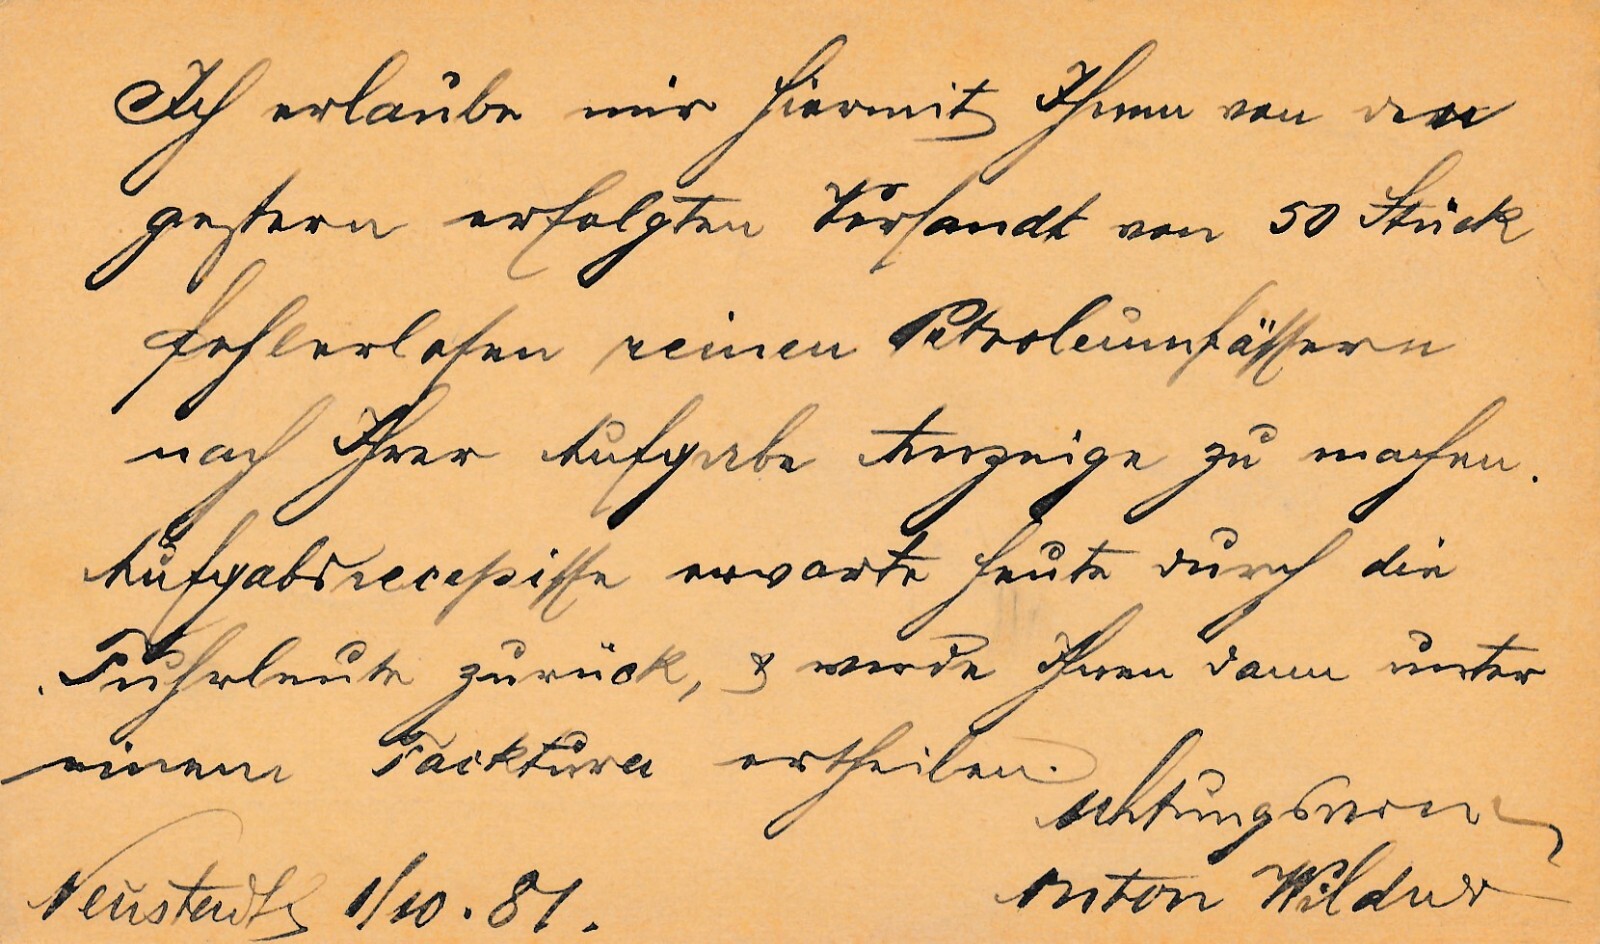 Ich erlaube mir hiermit Ihnen von den
gestern erfolgten Versandt von 50 Stück
fehlerlosen reinen Petroleumfässern
nach Ihrer Aufgabe Anzeige zu machen.
Aufgabsrecepisse erwarte heute durch die
Fuhrleute zurück, & werde Ihnen dann unter
einem Facktura ertheilen.
Achtungsvoll
Neustadt 1/10.81.
Anton